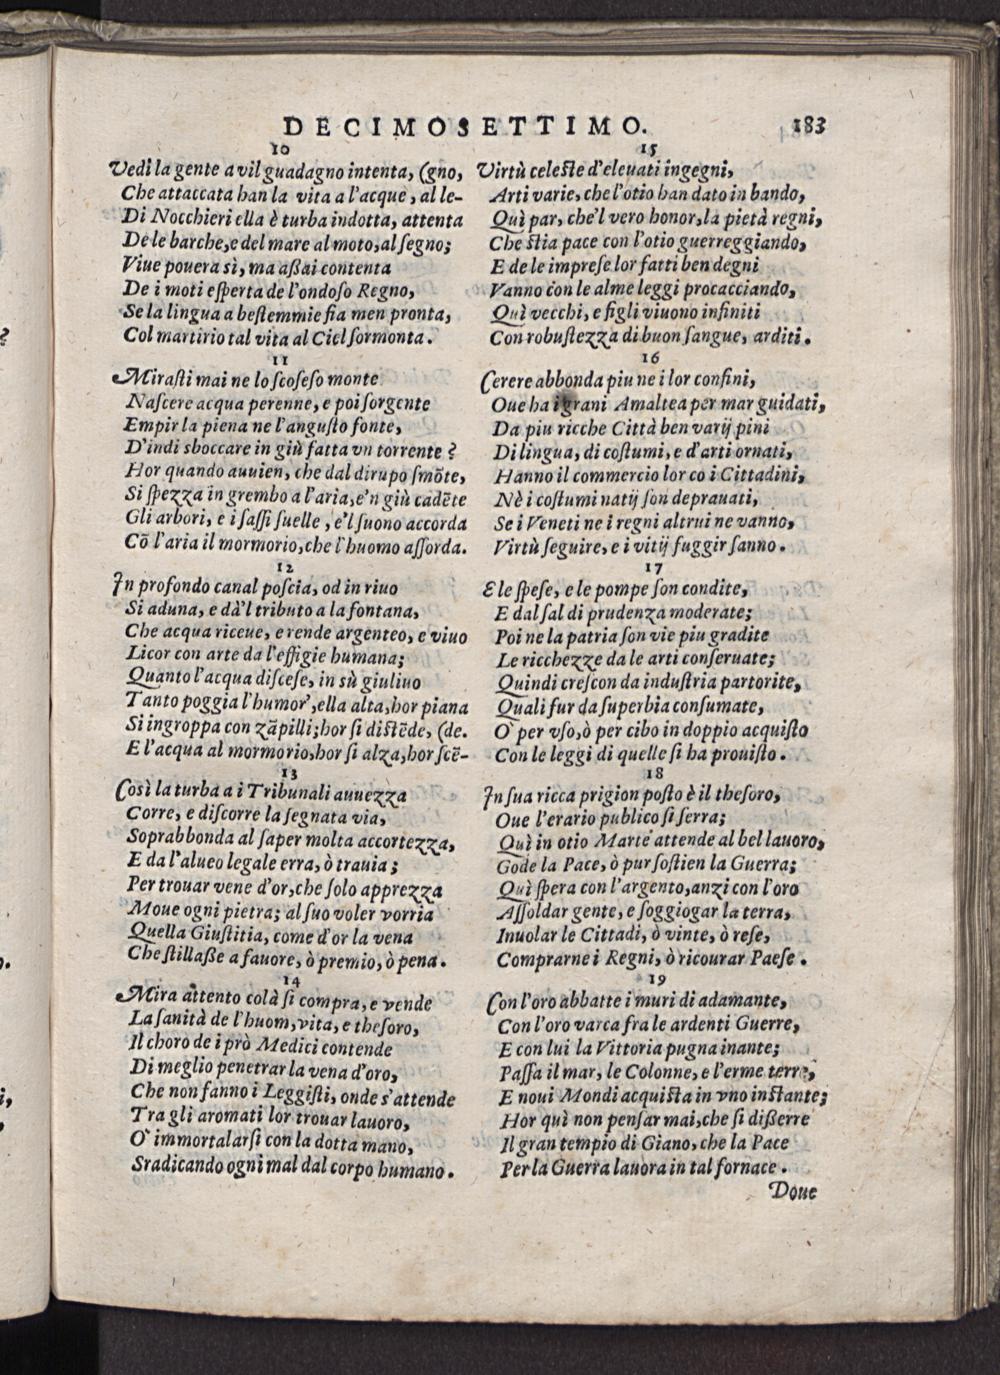 DECIMOSETTIMO. 183
10
Vedi la gente a vil guadagno intenta, (gno,
Che attaccata han la vita a l'acque, al le-
Di Nocchieri ella è turba indotta, attenta
De le barche, e del mare al moto, al ſegno;
Viue pouera sì, ma aßai contenta
De i moti eſperta de l'ondoſo Regno,
Se la lingua a beſtemmie fia men pronta,
Col martirio tal vita al Ciel ſormonta.
11
Miraſti mai ne lo ſcoſeſo monte
Naſcere acqua perenne, e poi ſorgente
Empir la piena ne l'anguſto fonte,
D'indi sboccare in giù fatta vn torrente?
Hor quando auuien, che dal dirupo ſmõte,
Si ſpezza in grembo a l'aria, e'n giù cadẽte
Gli arbori, e i ſaſſi ſuelle, e'l ſuono accorda
Cõ l'aria il mormorio, che l'huomo aſſorda.
12
In profondo canal poſcia, od in riuo
Si aduna, e dà'l tributo a la fontana,
Che acqua riceue, e rende argenteo, e viuo
Licor con arte da l'effigie humana;
Quanto l'acqua diſceſe, in sù giuliuo
Tanto poggia l'humor, ella alta, hor piana
Si ingroppa con zãpilli; hor ſi diſtẽde, (de.
E l'acqua al mormorio, hor ſi alza, hor ſcẽ-
13
Così la turba a i Tribunali auuezza
Corre, e diſcorre la ſegnata via,
Soprabbonda al ſaper molta accortezza,
E da l'alueo legale erra, ò trauia;
Per trouar vene d'or, che ſolo apprezza
Moue ogni pietra; al ſuo voler vorria
Quella Giuſtitia, come d'or la vena
Che ſtillaße a fauore, ò premio, ò pena.
14
Mira attento colà ſi compra, e vende
La ſanità de l'huom, vita, e theſoro,
Il choro de i prò Medici contende
Di meglio penetrar la vena d'oro,
Che non fanno i Leggiſti, onde s'attende
Tra gli aromati lor trouar lauoro,
O' immortalarſi con la dotta mano,
Sradicando ogni mal dal corpo humano.
15
Virtù celeſte d'eleuati ingegni,
Arti varie, che l'otio han dato in bando,
Quì par, che'l vero honor, la pietà regni,
Che ſtia pace con l'otio guerreggiando,
E de le impreſe lor fatti ben degni
Vanno con le alme leggi procacciando,
Quì vecchi, e figli viuono infiniti
Con robuſtezza di buon ſangue, arditi.
16
Cerere abbonda piu ne i lor confini,
Oue ha i grani Amaltea per mar guidati,
Da piu ricche Città ben varij pini
Di lingua, di coſtumi, e d'arti ornati,
Hanno il commercio lor co i Cittadini,
Nè i coſtumi natij ſon deprauati,
Se i Veneti ne i regni altrui ne vanno,
Virtù ſeguire, e i vitij fuggir ſanno.
17
E le ſpeſe, e le pompe ſon condite,
E dal ſal di prudenza moderate;
Poi ne la patria ſon vie piu gradite
Le ricchezze da le arti conſeruate;
Quindi creſcon da induſtria partorite,
Quali fur da ſuperbia conſumate,
O' per vſo, ò per cibo in doppio acquiſto
Con le leggi di quelle ſi ha prouiſto.
18
In ſua ricca prigion poſto è il theſoro,
Oue l'erario publico ſi ſerra;
Quì in otio Marte attende al bel lauoro,
Gode la Pace, ò pur ſoſtien la Guerra;
Quì ſpera con l'argento, anzi con l'oro
Aſſoldar gente, e ſoggiogar la terra,
Inuolar le Cittadi, ò vinte, ò reſe,
Comprarne i Regni, ò ricourar Paeſe.
19
Con l'oro abbatte i muri di adamante,
Con l'oro varca fra le ardenti Guerre,
E con lui la Vittoria pugna inante;
Paſſa il mar, le Colonne, e l'erme terre,
E noui Mondi acquiſta in vno inſtante;
Hor quì non penſar mai, che ſi dißerre
Il gran tempio di Giano, che la Pace
Per la Guerra lauora in tal fornace.
Doue